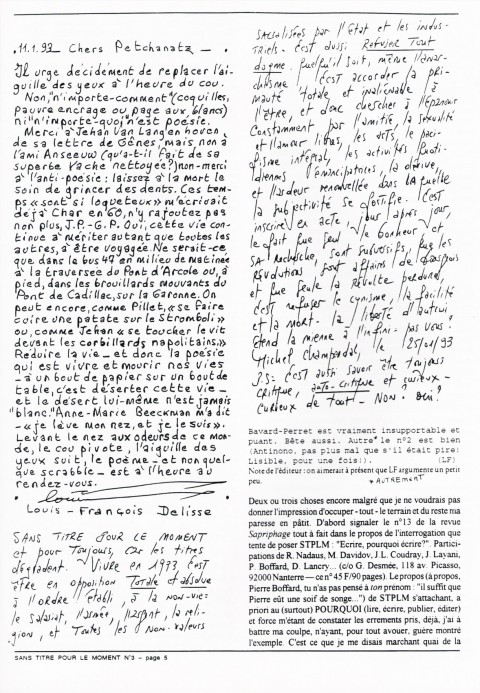 .11.1.93. Chers Petchanatz — .
Il urge décidément de replacer l'ai-
guille des yeux à l'heure du cou.
Non, "n'importe-comment" (coquilles,
pauvre encrage ou page aux blancs)
ni "n'importe-quoi" n'est poésie.
Merci à Jehan Van Langhenhoven
de sa lettre de Gênes, mais non à
l'ami Anseeuw (qu'a-t-il fait de sa
superbe Vache nettoyée?) non-merci
à l'anti-poésie : laissez à la mort le
soin de grincer des dents. Ces tem-
ps « sont si loqueteux » m'écrivait
déjà Char en 60, n'y rajoutez pas
non plus, J.P.-G.P. Oui, cette vie con-
tinue à mériter autant que toutes les
autres, à être voyagée. Ne serait-ce
que dans le bus 47 en milieu de matinée
à la traversée du Pont d'Arcole ou, à
pied, dans les brouillards mouvants du
Pont de Cadillac, sur la Garonne. On
peut encore, comme Pillet, « se faire
cuire une patate sur le Stromboli »
ou, comme Jehan « se toucher le vit
devant les corbillards napolitains. »
Réduire la vie — et donc la poésie
qui est vivre et mourir nos vies
— à un bout de papier sur un bout de
table, c'est déserter cette vie —
et le désert lui-même n'est jamais
"blanc." Anne-Marie Beeckman m'a dit
— « je lave mon nez, et je le suis ».
Levant le nez aux odeurs de ce mon-
de, le cou pivote, l'aiguille des
yeux suit, le poème — et non quel-
que scrabble — est à l'heure au
rendez-vous.
Louis - François Delisse
SANS TITRE POUR LE MOMENT
et pour toujours, car les titres
dégradent. Vivre en 1973, c'est
être en opposition Totale et absolue
à l'ordre établi, à la non-vie :
le salariat, l'armée, l'argent, la reli-
gion, et toutes les non-valeurs
SANS TITRE POUR LE MOMENT N°3 - page 5
sacralisées par l'État et les indus-
triels. C'est aussi Refuser Tout
dogme quel qu'il soit, même l'anar-
chisme. C'est accorder la pri-
mauté totale et inaliénable à
l'être, et donc chercher à l'épanouir
constamment par l'amitié, la sexualité
et l'amour libres, les arts, le paci-
fisme intégral, les activités quoti-
diennes émancipatrices, la dérive
et l'ardeur renouvelée dans laquelle
la subjectivité se fortifie. C'est
inscrire en acte, jour après jour,
le fait que seul le bonheur et
sa recherche, sont subversifs, que les
révolutions sont affaires de
et que seule la révolte perdure,
c'est refuser le cynisme, la facilité
et la mort. La liberté d'autrui
étend la mienne à l'infini - pas vous ?
Michel Champendal, le 25/01/93
J.S : C'est aussi savoir être toujours
critique, auto-critique et curieux -
curieux de tout - Non. Oui ?
Bavard-Perret est vraiment insupportable et
puant. Bête aussi. Autre* le n°2 est bien
(Antinono, pas plus mal que s'il était pire:
Lisible, pour une fois!). (LF)
Note de l'éditeur : on aimerait à présent que LF argumente un petit
peu. * AUTREMENT
Deux ou trois choses encore malgré que je ne voudrais pas
donner l'impression d'occuper - tout - le terrain et du reste ma
paresse en pâtit. D'abord signaler le n°13 de la revue
Sapriphage tout à fait dans le propos de l'interrogation que
tente de poser STPLM : "Ecrire, pourquoi écrire?". Partici-
pations de R. Nadaus, M. Davidov, J.L. Coudray, J. Layani,
P. Boffard, D. Lancry... (c/o G. Desmée, 118 av. Picasso,
92000 Nanterre — ce n° 45 F/90 pages). Le propos (à propos,
Pierre Boffard, tu n'as pas pensé à ton prénom : "il suffit que
Pierre eût une soif de songe...") de STPLM s'attachant, a
priori au (surtout) POURQUOI (lire, écrire, publier, éditer)
et force m'étant de constater les errements pris, déjà, j'ai à
battre ma coulpe, n'ayant, pour tout avouer, guère montré
l'exemple. C'est ce que je me disais marchant quai de la